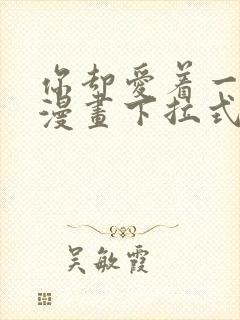 你却愛着一
漫畫下拉式
吴敏霞